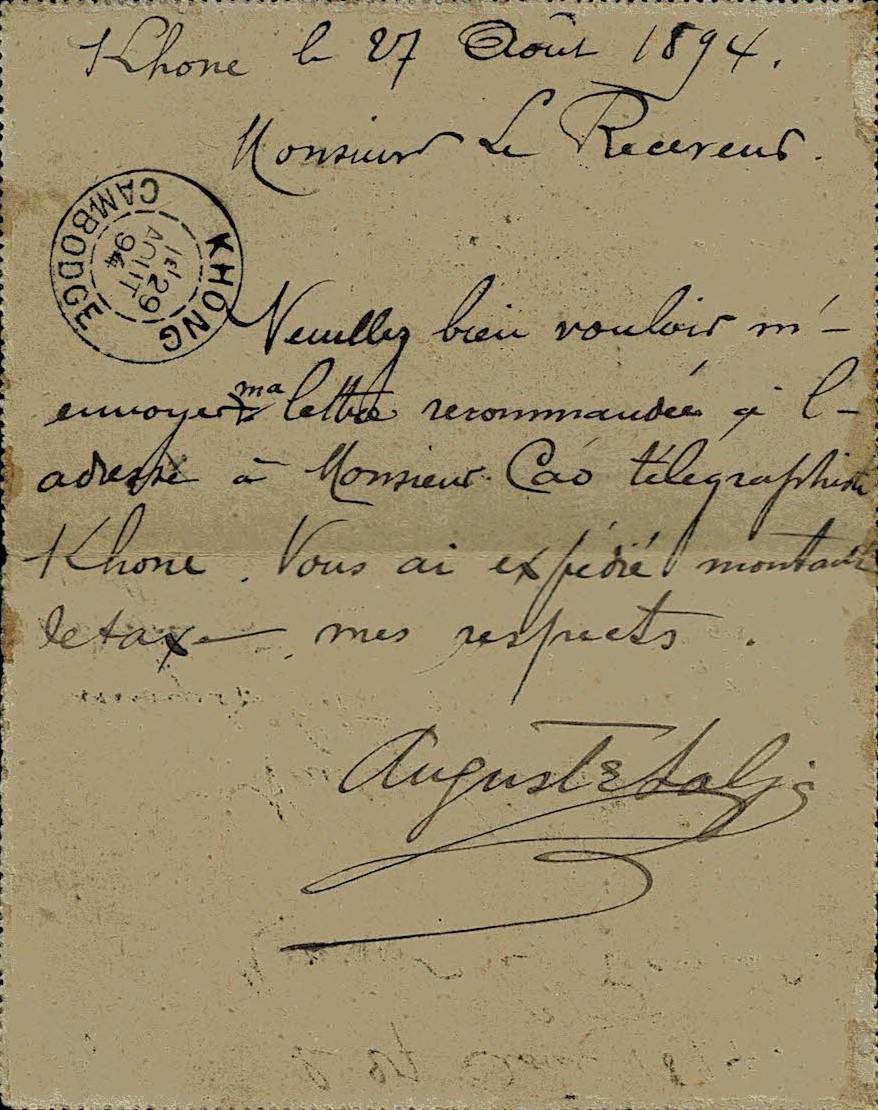 Khone le 27 Août 1894.
Monsieur Le Receveur.
KHONG
CAMBODGE
1E/
29
AOUT
94
Veuillez bien vouloir m'-
envoyer ma lettre recommandée à l'-
adresse à Monsieur Cáo télégraphiste
Khone. Vous ai expédié montant
de taxe —. mes respects.
Auguste